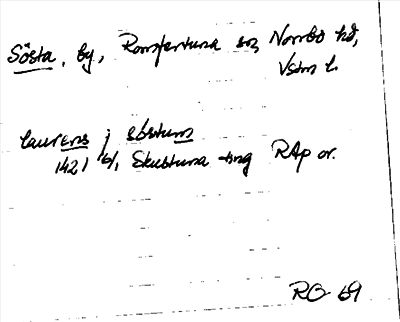 Sösta, by, Romfertuna sn, Norrbo hd,
Vstm l.
laurens j söstum
1421 6/1 Skultuna ting RAp or.
RO 69